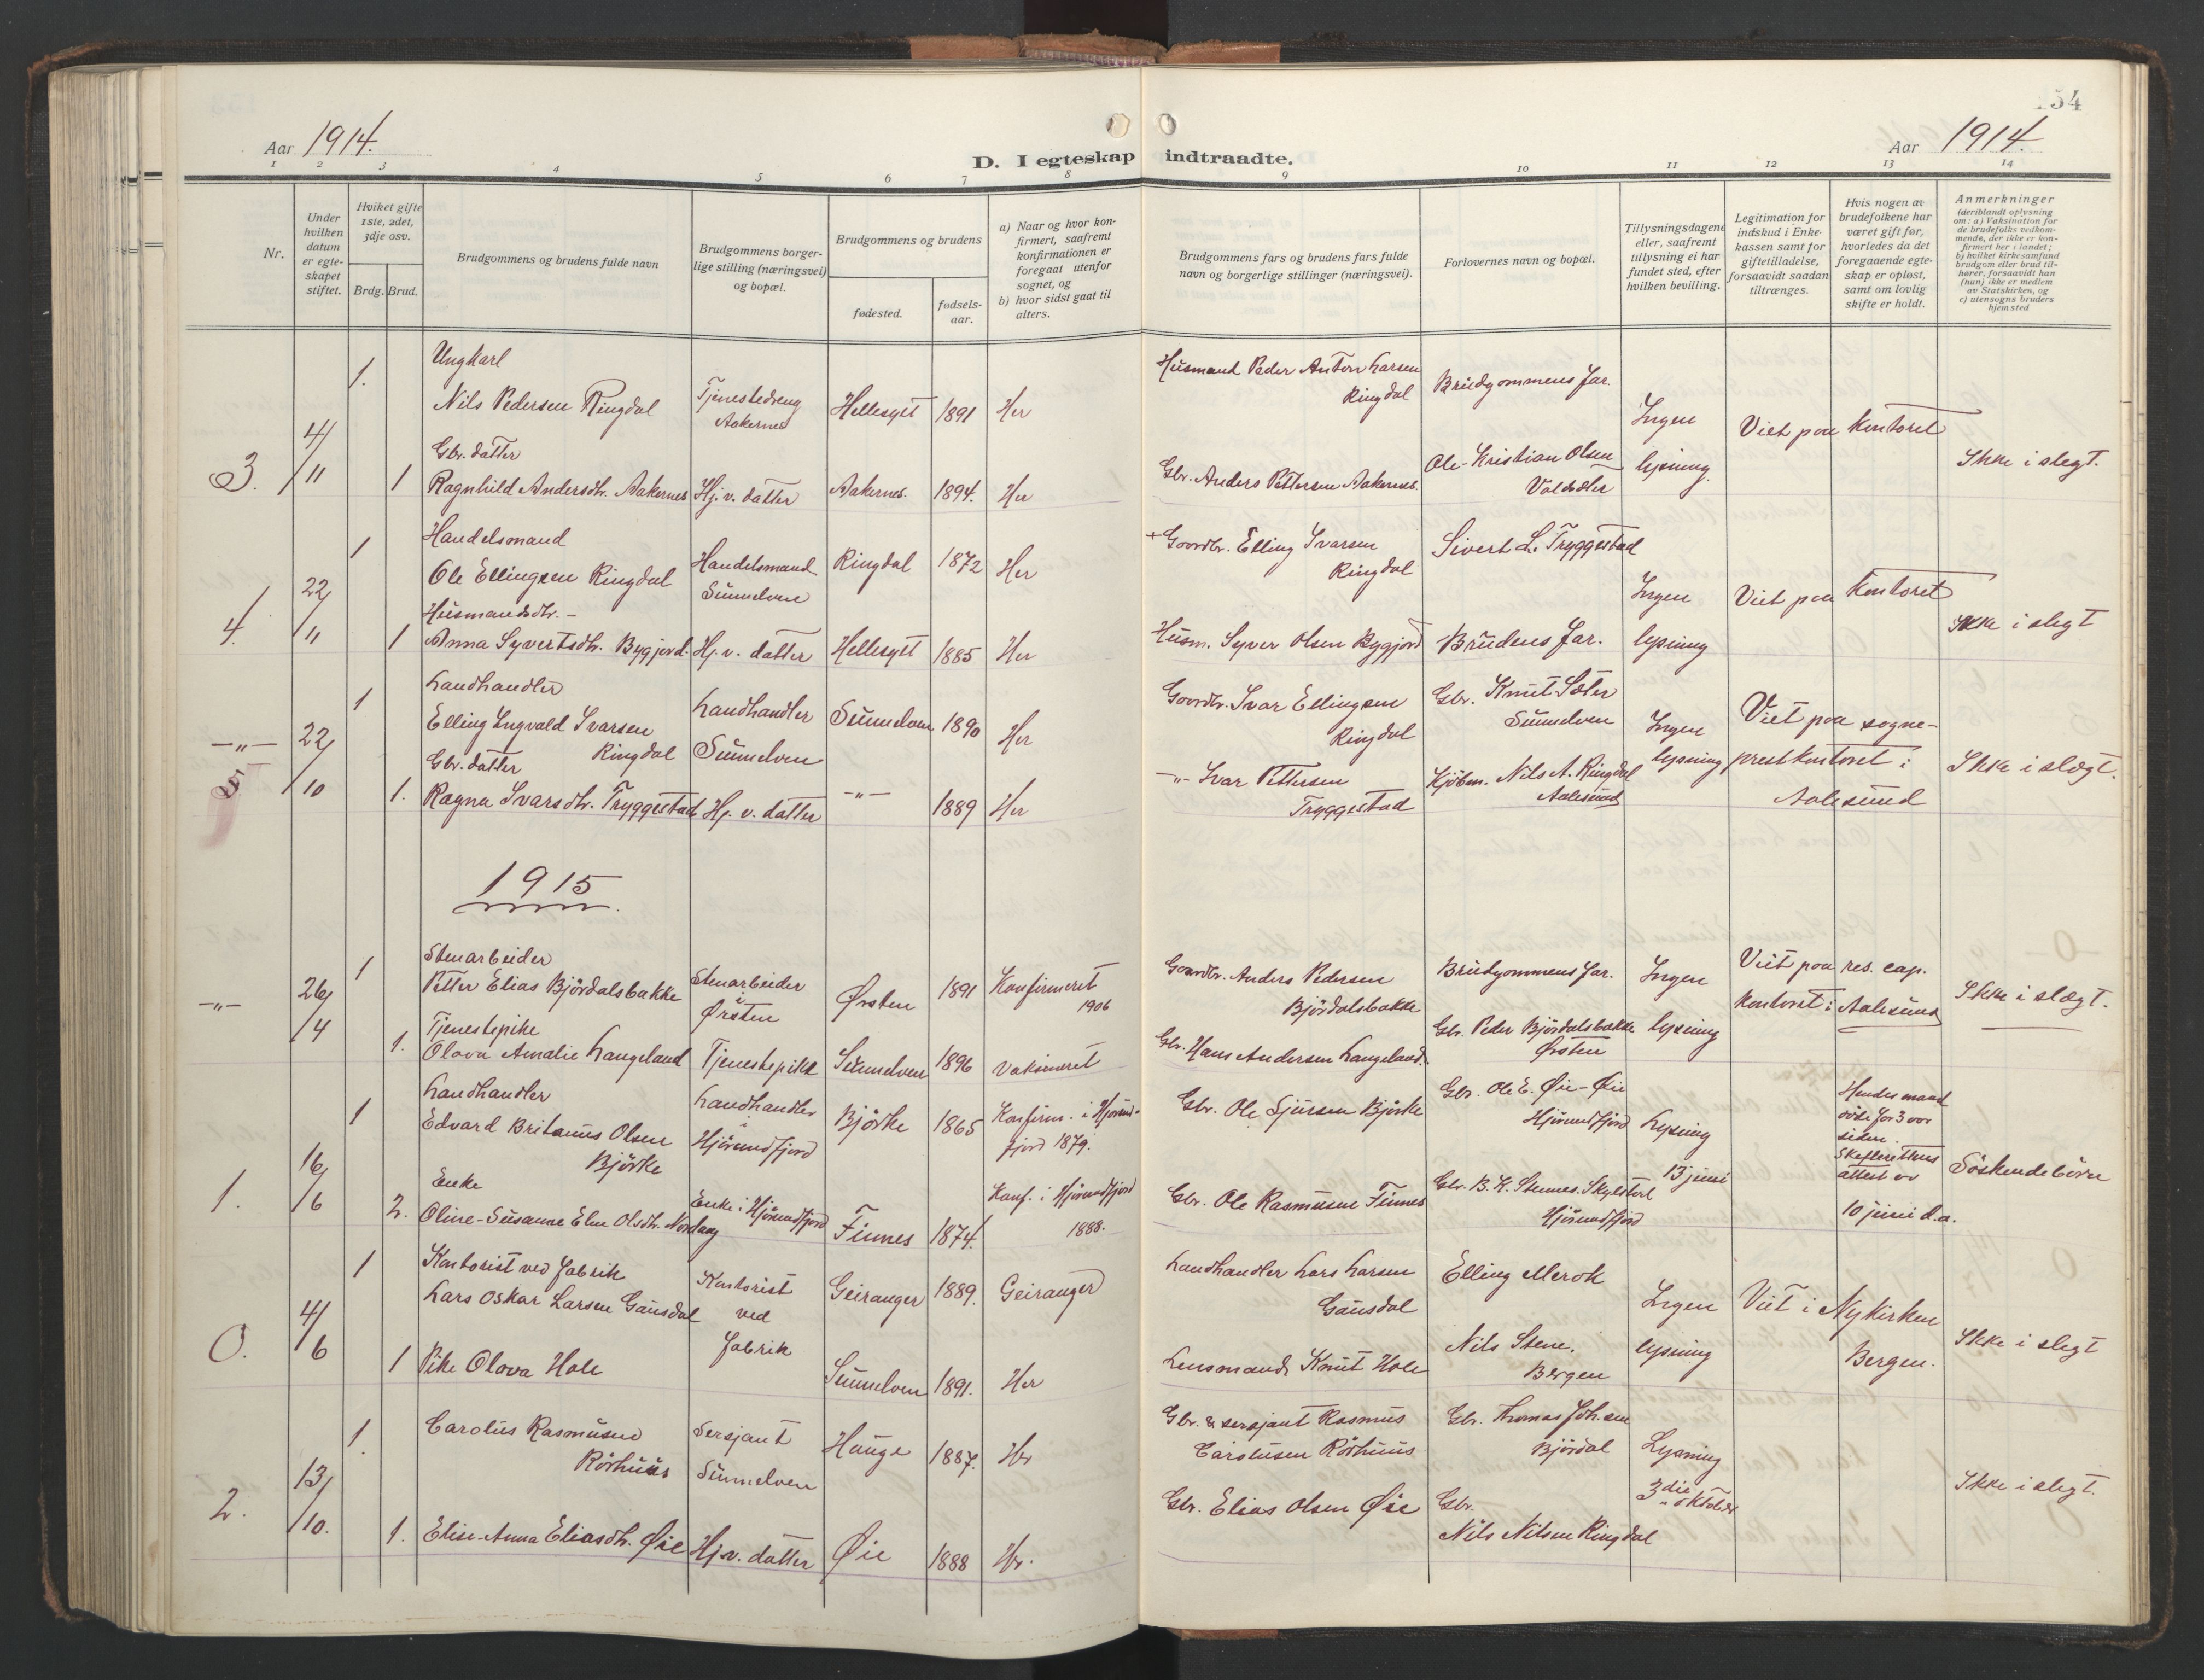 154
Aar 1914.
D. I egteskap indtraadte.
Aar 1914.
1 2 3 4 5 6 7 8 9 10 11 12 13 14
Nr.
Under hvilken datum er egteskapet stiftet.
Hviket gifte 1ste, 2det, 3dje osv.
Brdg. Brud.
Brudgommens og brudens fulde navn
Brudgommens borgerlige stilling (næringsvei) og bopæl.
Brudgommens og brudens
fødested.
fødselsaar.
a) Naar og hvor konfirmert, saafremt konfirmationen er foregaat utenfor sognet, og
b) hvor sidst gaat til alters.
Brudgommens fars og brudens fars fulde navn og borgerlige stillinger (næringsvei).
Forlovernes navn og bopæl.
Tillysningsdagene eller, saafremt tillysning ei har fundet sted, efter hvilken bevilling.
Legitimation for indskud i Enkekassen samt for giftetilladelse, forsaavidt saadan tiltrænges.
Hvis nogen av brudefolkene har været gift før, hvorledes da det foregaaende egteskap er opløst, samt om lovlig skifte er holdt.
Anmerkninger
(deriblandt oplysning om: a) Vaksination for de brudefolks vedkommende, der ikke er konfirmert her i landet; b) hvilket kirkesamfund brudgom eller brud tilhører, forsaavidt han (hun) ikke er medlem av Statskirken, og c) utensogns bruders hjemsted
3. 4/11
1. Ungkarl
Nils Pedersen Ringdal
Tjenestedreng Aakernes
Hellesylt 1891 Her
Husmand Peder Anton Larsen Ringdal
Brudgommens far.
Ingen lysning
Viet paa kontoret
Ikke i slegt.
1 Gbr. datter
Ragnhild Andersdtr. Aakernes
Hj. v. datter
Aakernes. 1894. Her
Gbr. Anders Pettersen Aakernes.
Ole Kristian Olsen
4. 22/11
1 Handelsmand
Ole Ellingsen Ringdal
Handelsmand Sunnelven
Ringdal 1872 Her
+ Gaardbr. Elling Ivarsen Ringdal
Sivert L. Tryggestad
Ingen lysning
Viet paa kontoret
Ikke i slegt
Husmandsdtr. -
1 Anna Syvertsdtr. Bygjord.
Hj. v. datter
Hellesylt 1885 Her
Husm. Syver Olsen Bygjord
Brudens far.
-"- 5 22/10
1 Landhandler
Elling Ingvald Ivarsen Ringdal
Landhandler Sunnelven
Sunnelven 1890 Her
Gaardbr. Ivar Ellingsen Ringdal
Gbr. Knut Sæter Sunnelven
Ingen lysning
Viet paa sogneprestkontoret i Aalesund
Ikke i slægt.
Gbr. datter
1. Ragna Ivarsdtr. Tryggestad
Hj. v. datter
-"- 1889 Her
-"- Ivar Pettersen Tryggestad
Kjøbm. Nils A. Ringdal Aalesund
1915
-"- 26/4
1 Stenarbeider
Petter Elias Bjørdalsbakke
Stenarbeider Ørsten
Ørsten 1891
Konfirmeret 1906
Gaardbr. Anders Pedersen Bjørdalsbakke
Brudgommens far.
Ingen lysning
Viet paa res. cap. kontoret i Aalesund
Ikke i slægt.
Tjenestepike
1. Olava Amalie Langeland
Tjenestepike
Sunnelven 1896
vaksineret
Gbr. Hans Andersen Langeland.
Gbr. Peder Bjørdalsbakke Ørsten
1. 16/6
1 Landhandler
Edvard Britanus Olsen Bjørke
Landhandler i Hjørundfjord
Bjørke 1865
Konfirm. i Hjørundfjord 1879.
Gbr. Ole Sjursen Bjørke
Gbr. Ole E. Øie - Øie Hjørundfjord
Lysning 13 juni
Hendes mand døde for 3 aar siden. Skifterettens attest av 10 juni d.a.
Søskendebørn
Enke
2. Oline-Susanne Elne Olsdtr. Nordang
Enke i Hjørundfjord
Finnes 1874.
Konf. i Hjørundfjord 1888.
Gbr. Ole Rasmusen Finnes
Gbr. B. K. Stennes. Skylstad Hjørundfjord
0. 4/6
1 Kontorist ved fabrik
Lars Oskar Larsen Gausdal
Kontorist ved fabrik
Geiranger 1889. Geiranger
Landhandler Lars Larsen Gausdal
Elling Merok
Ingen lysning
Viet i Nykirken Bergen.
Ikke i slegt
1 Pike Olava Hole
Sunnelven 1891. Her
Lensmand Knut Hole
Nils Stene. Bergen
2. 13/10.
1. Carolus Rasmusen Rørhuus
Sersjant Sunnelven
Hauge 1887. Her
Gbr. & sersjant Rasmus Carolusen Rørhuus
Gbr. Thomas Joh.sen Bjørdal
Lysning 3die oktober
Ikke i slegt.
1. Elise-Anna Eliasdtr. Øie
Hj.v. datter
Øie 1888 Her.
Gbr. Elias Olsen Øie
Gbr. Nils Nilsen Ringdal